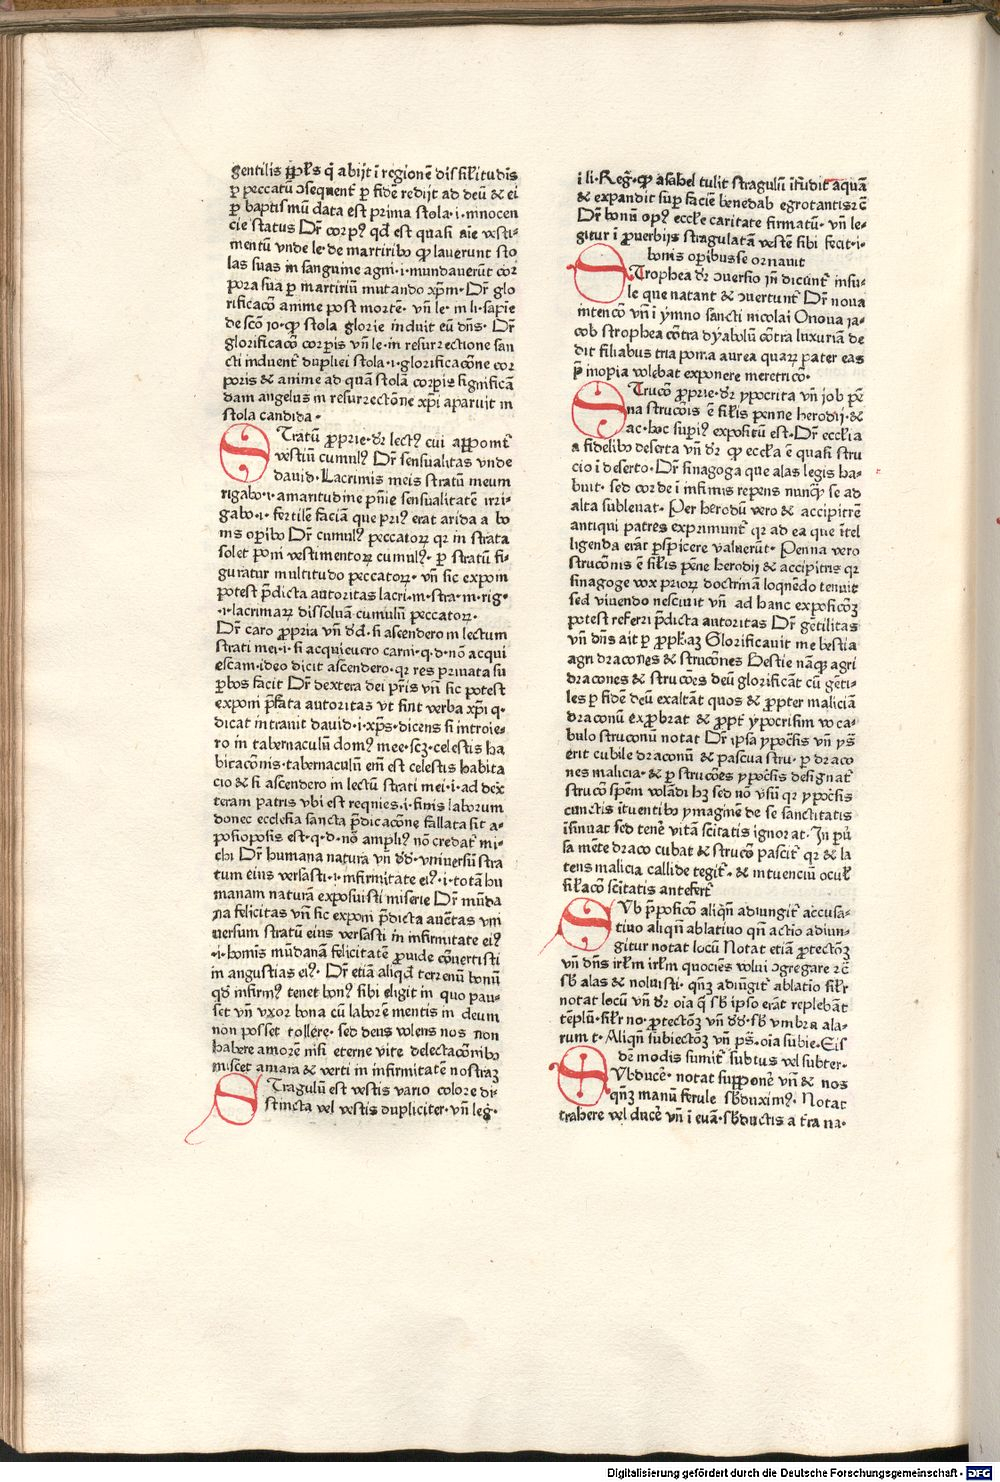 gentilis ppl̃s q̃ abijt ĩ regionẽ dissil̃itudĩs
ꝑ peccatũ ↄsequenť ꝑ fidẽ redijt ad deũ & ei
ꝑ baptismũ data est prima stola·i·innocen
cie status Dr̃ corpꝰ qd̃ est quasi aĩe vesti-
mentũ vnde le·de martiribo ꝙ lauerunt sto
las suas in sanguine agni·i·mundauerũt cor
pora sua ꝑ martiriũ mutando xp̃m· Dr̃ glo
rificacõ anime post mortẽ· vñ le· in li·sapiẽ
de scõ io·ꝙ stola glorie induit eũ dñs· Dr̃
glorificacõ corpis vñ le·in resurrectione san
cti induent dupliei stola·i·glorificacõne cor
poris & anime ad quã stolã corpis significã
dam angelus in resurrectõne xp̃i aparuit in
stola candida·
STratũ ꝓprie·dr̃ lectꝰ cui apponit̃
vestiũ cumulꝰ Dr̃ sensualitas vnde
dauid·Lacrimis meis stratũ meum
rigabo·i·amaritudine pñie sensualitatẽ irri-
gabo·i· fertilẽ faciã que priꝰ erat arida a bo
nis opibo Dr̃ cumulꝰ peccatoꝝ qr in strata
solet poni vestimentoꝝ cumulꝰ· ꝑ stratũ fi-
guratur multitudo peccatoꝝ· vñ sic exponi
potest p̃dicta autoritas lacri·m·stra·m·rig·
·i·lacrimaꝝ dissoluã cumulũ peccatoꝝ·
Dr̃ caro ꝓpria vñ dd̃·si ascendero in lectum
strati mei·i·si acquieuero carni·q·d·nõ acqui
escam·ideo dicit ascendero·qr res priuata su
pbos facit Dr̃ dextera dei pr̃is vñ sic potest
exponi p̃fata autoritas vt sint verba xp̃i q·
dicat intrauit dauid·i·xp̃s·dicens si introie-
ro in tabernaculũ domꝰ mee·scꝫ·celestis ha
bitacõnis·tabernaculũ eni est celestis habita
cio & si ascendero in lectũ strati mei·i·ad dex
teram patris vbi est requies·i·finis laborum
donec ecclesia sancta p̃dicacõne fallata sit a-
posioposis est·q·d·nõ ampliꝰ nõ credat̃ mi-
chi Dr̃ humana natura vñ dd̃·vniuersũ stra
tum eius versasti·i·infirmitate eiꝰ·i·totã hu
manam naturã exposuisti miserie Dr̃ mũda
na felicitas vñ sic exponi p̃dicta auctãs vni
uersum stratũ eius versasti in infirmitate eiꝰ
·i·homĩs mũdanã felicitatẽ ꝓuide cõuertisti
in angustias eiꝰ· Dr̃ etiã aliqd̃ terrenũ bonũ
qd̃ infirmꝰ tenet bonꝰ sibi eligit in quo pau-
set vñ vxor bona cũ laborẽ mentis in deum
non posset tollere·sed deus volens nos non
habere amorẽ nisi eterne vite delectacõnibo
miscet amara & verti in infirmitatẽ nostraꝫ
STragulũ est vestis vario colore di-
stincta vel vestis dupliciter·vñ leg̃·
ĩ li·Reg̃·ꝙ asahel tulit stragulũ ĩfudit aquã
& expandit sup faciẽ benedab egrotantis·zc̃
Dr̃ bonũ opꝰ eccl̃e caritate firmatũ· vñ le-
gitur ĩ ꝓuerbijs stragulatã vestẽ sibi fecit·i·
bonis opibus se ornauit
STrophea dr̃ ↄuersio iñ dicunt̃ insu-
le que natant & ↄuertunt̃ Dr̃ noua
intencõ vñ ĩ ymno sancti nicolai O noua ia-
cob strophea cõtra dyabolũ cõtra luxuriã de
dit filiabus tria poma aurea quaꝝ pater eas
p̃ inopia volebat exponere meretricõ·
STrucõ ꝓprie·dr̃ ypocrita vñ job pẽ
na strucõis ẽ sil̃is penne herodij·&
ac·hoc supiꝰ expositũ est·Dr̃ eccl̃ia
a fidelibo deserta vñ dr̃ ꝙ eccl̃a ẽ quasi stru
cio ĩ deserto·Dr̃ sinagoga que alas legis ha-
buit·sed corde ĩ infimis repens nunqꝫ se ad
alta subleuat·Per herodũ vero & accipitrẽ
antiqui patres exprimunt̃ qr ad ea que ĩtel
ligenda erãt pspicere valuerũt·Penna vero
strucõnis ẽ sil̃is pẽne herodij & accipitris qr
sinagoge vox prioꝝ doctrinã loquẽdo tenuit
sed viuendo nesciuit vñ ad hanc exposicõꝫ
potest referri p̃dicta autoritas Dr̃ gẽtilitas
vñ dñs ait ꝑ ꝓphꝫ Glorificauit me bestia
agri dracones & strucõnes Bestie nãqꝫ agri
dracones & strucões deũ glorificãt cũ gẽti-
les ꝑ fidẽ deũ exaltãt quos & ꝓpter maliciã
draconũ exꝓbrat & ꝓpt̃ ypocrisim voca-
bulo struconũ notat Dr̃ ipsa ypoc̃sis vñ ys̃
erit cubile draconũ & pascua stru· ꝑ draco
nes malicia·& ꝑ strucões ypoc̃sis designat̃
strucõ spẽm volãdi hꝫ sed nõ vsũ qr ypoc̃sis
cunctis ĩtuentibo ymaginẽ de se sanctitatis
ĩsinuat sed tenẽ vitã scitatis ignorat· In pũ
sa mẽte draco cubat & strucõ pascit̃ qr & la
tens malicia callide tegit̃·& intuenciũ ocul̃
sil̃acõ scitatis antefert̃
SVb p̃posicõ aliqñ adiungit̃ accusa-
tiuo aliqñ ablatiuo qñ actio adiun-
gitur notat locũ Notat etiã ꝓtectõꝫ
vñ dñs irl̃m irl̃m quociẽs volui ↄgregare zc̃
sb̃ alas & noluisti· qñꝫ adiũgit̃ ablatio sil̃r
notat locũ vñ dr̃ oĩa q̃ sb̃ ipso erãt replebãt
tẽplũ·sil̃r no·ꝓtectõꝫ vñ dd̃·sb̃ vmbra ala-
rum t·Aliqñ subiectõꝫ vñ ps̃·oĩa subie·Eis
dẽ modis sumit̃ subtus vel subter·
SVbducẽ· notat supponẽ vñ & nos
qñꝫ manũ ferule sb̃duximꝰ· Notat
trahere vel ducẽ vñ ĩ euã·sb̃ductis a t̃ra na·
Digitalisierung gefördert durch die Deutsche Forschungsgemeinschaft - DFG